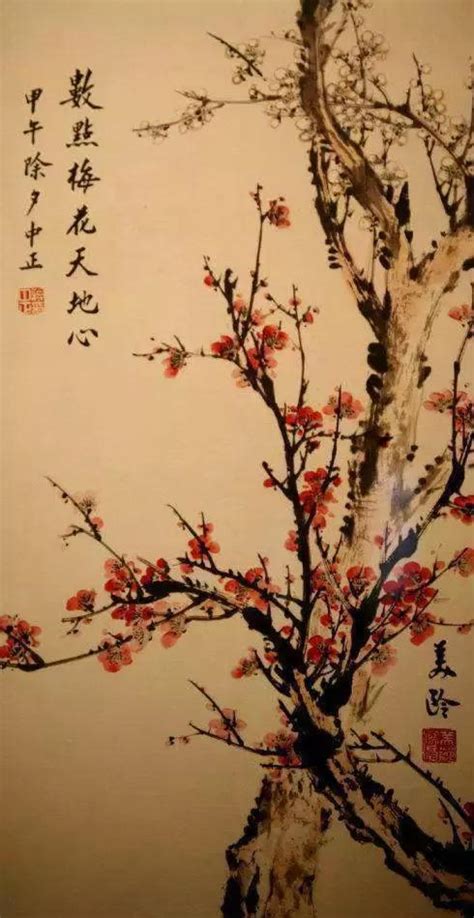 數點梅花天地心
甲午除夕中正
美齡